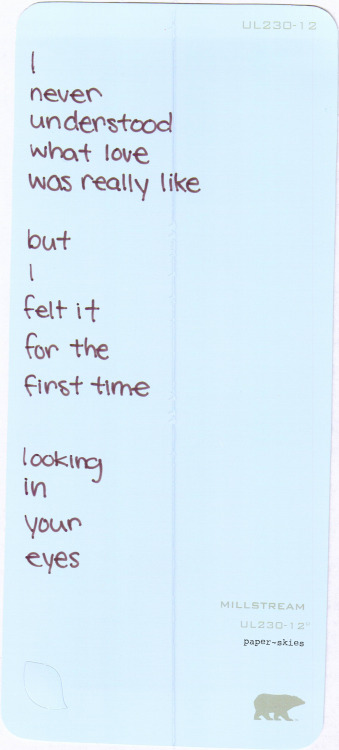 UL230-12
I
never
understood
what love
was really like
but
I
felt it
for the
first time
looking
in
your
eyes
MILLSTREAM
UL230-12
paper-skies